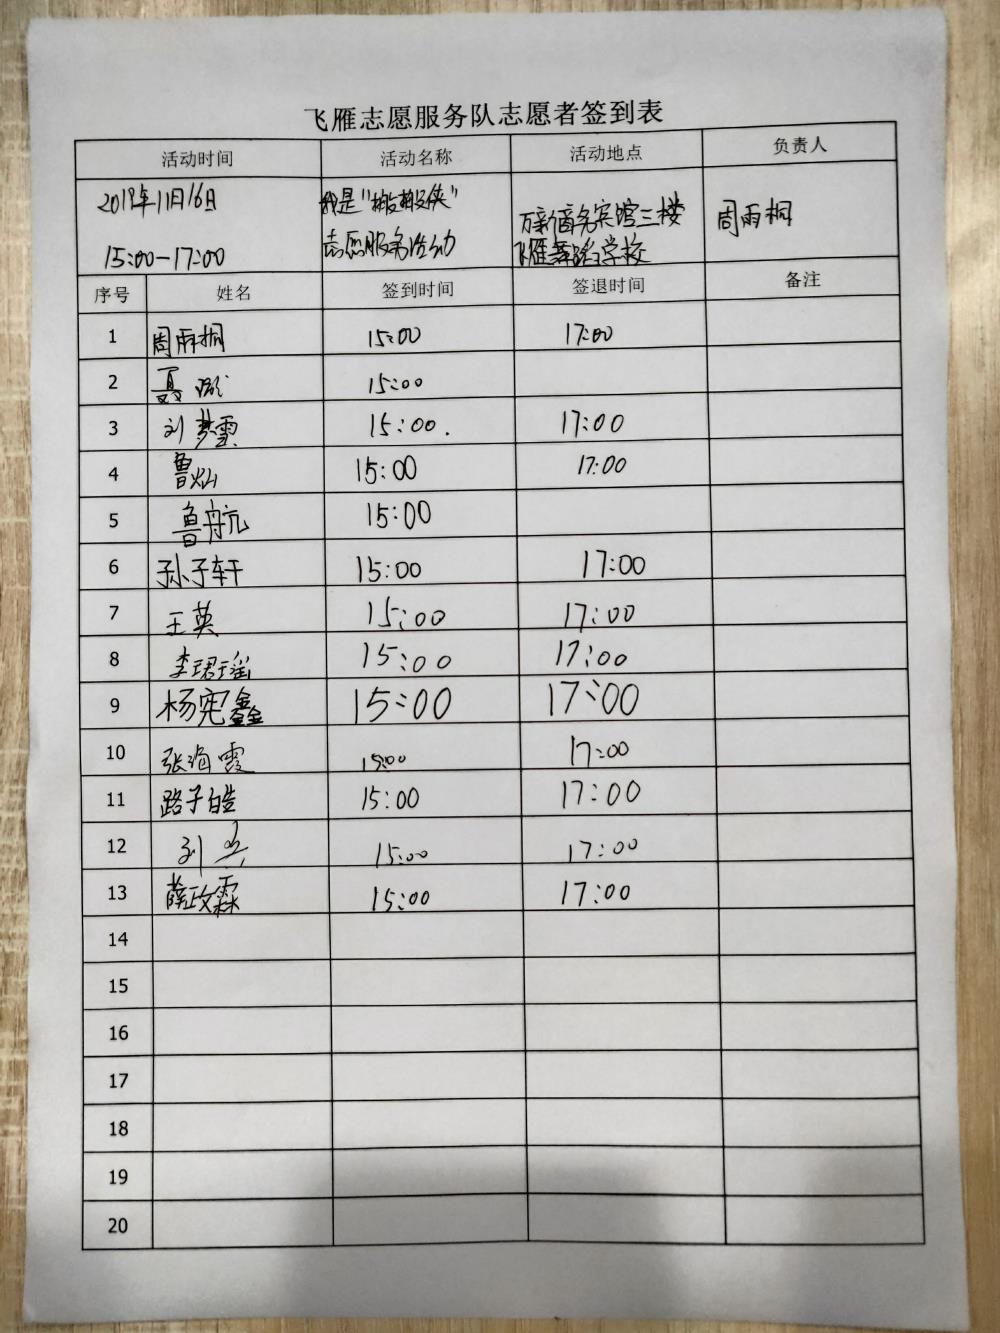 飞雁志愿服务队志愿者签到表
活动时间 活动名称 活动地点 负责人
2019年11月16日 我是"搬搬侠" 万新商务宾馆三楼 周雨桐
15:00-17:00 志愿服务活动 飞雁舞蹈学校
序号 姓名 签到时间 签退时间 备注
1 周雨桐 15:00 17:00
2 聂 15:00
3 刘梦雪 15:00. 17:00
4 鲁灿 15:00 17:00
5 鲁航 15:00
6 孙子轩 15:00 17:00
7 王英 15:00 17:00
8 李珺瑶 15:00 17:00
9 杨宪鑫 15:00 17:00
10 张海霞 15:00 17:00
11 路子皓 15:00 17:00
12 刘 15:00 17:00
13 薛政霖 15:00 17:00
14
15
16
17
18
19
20